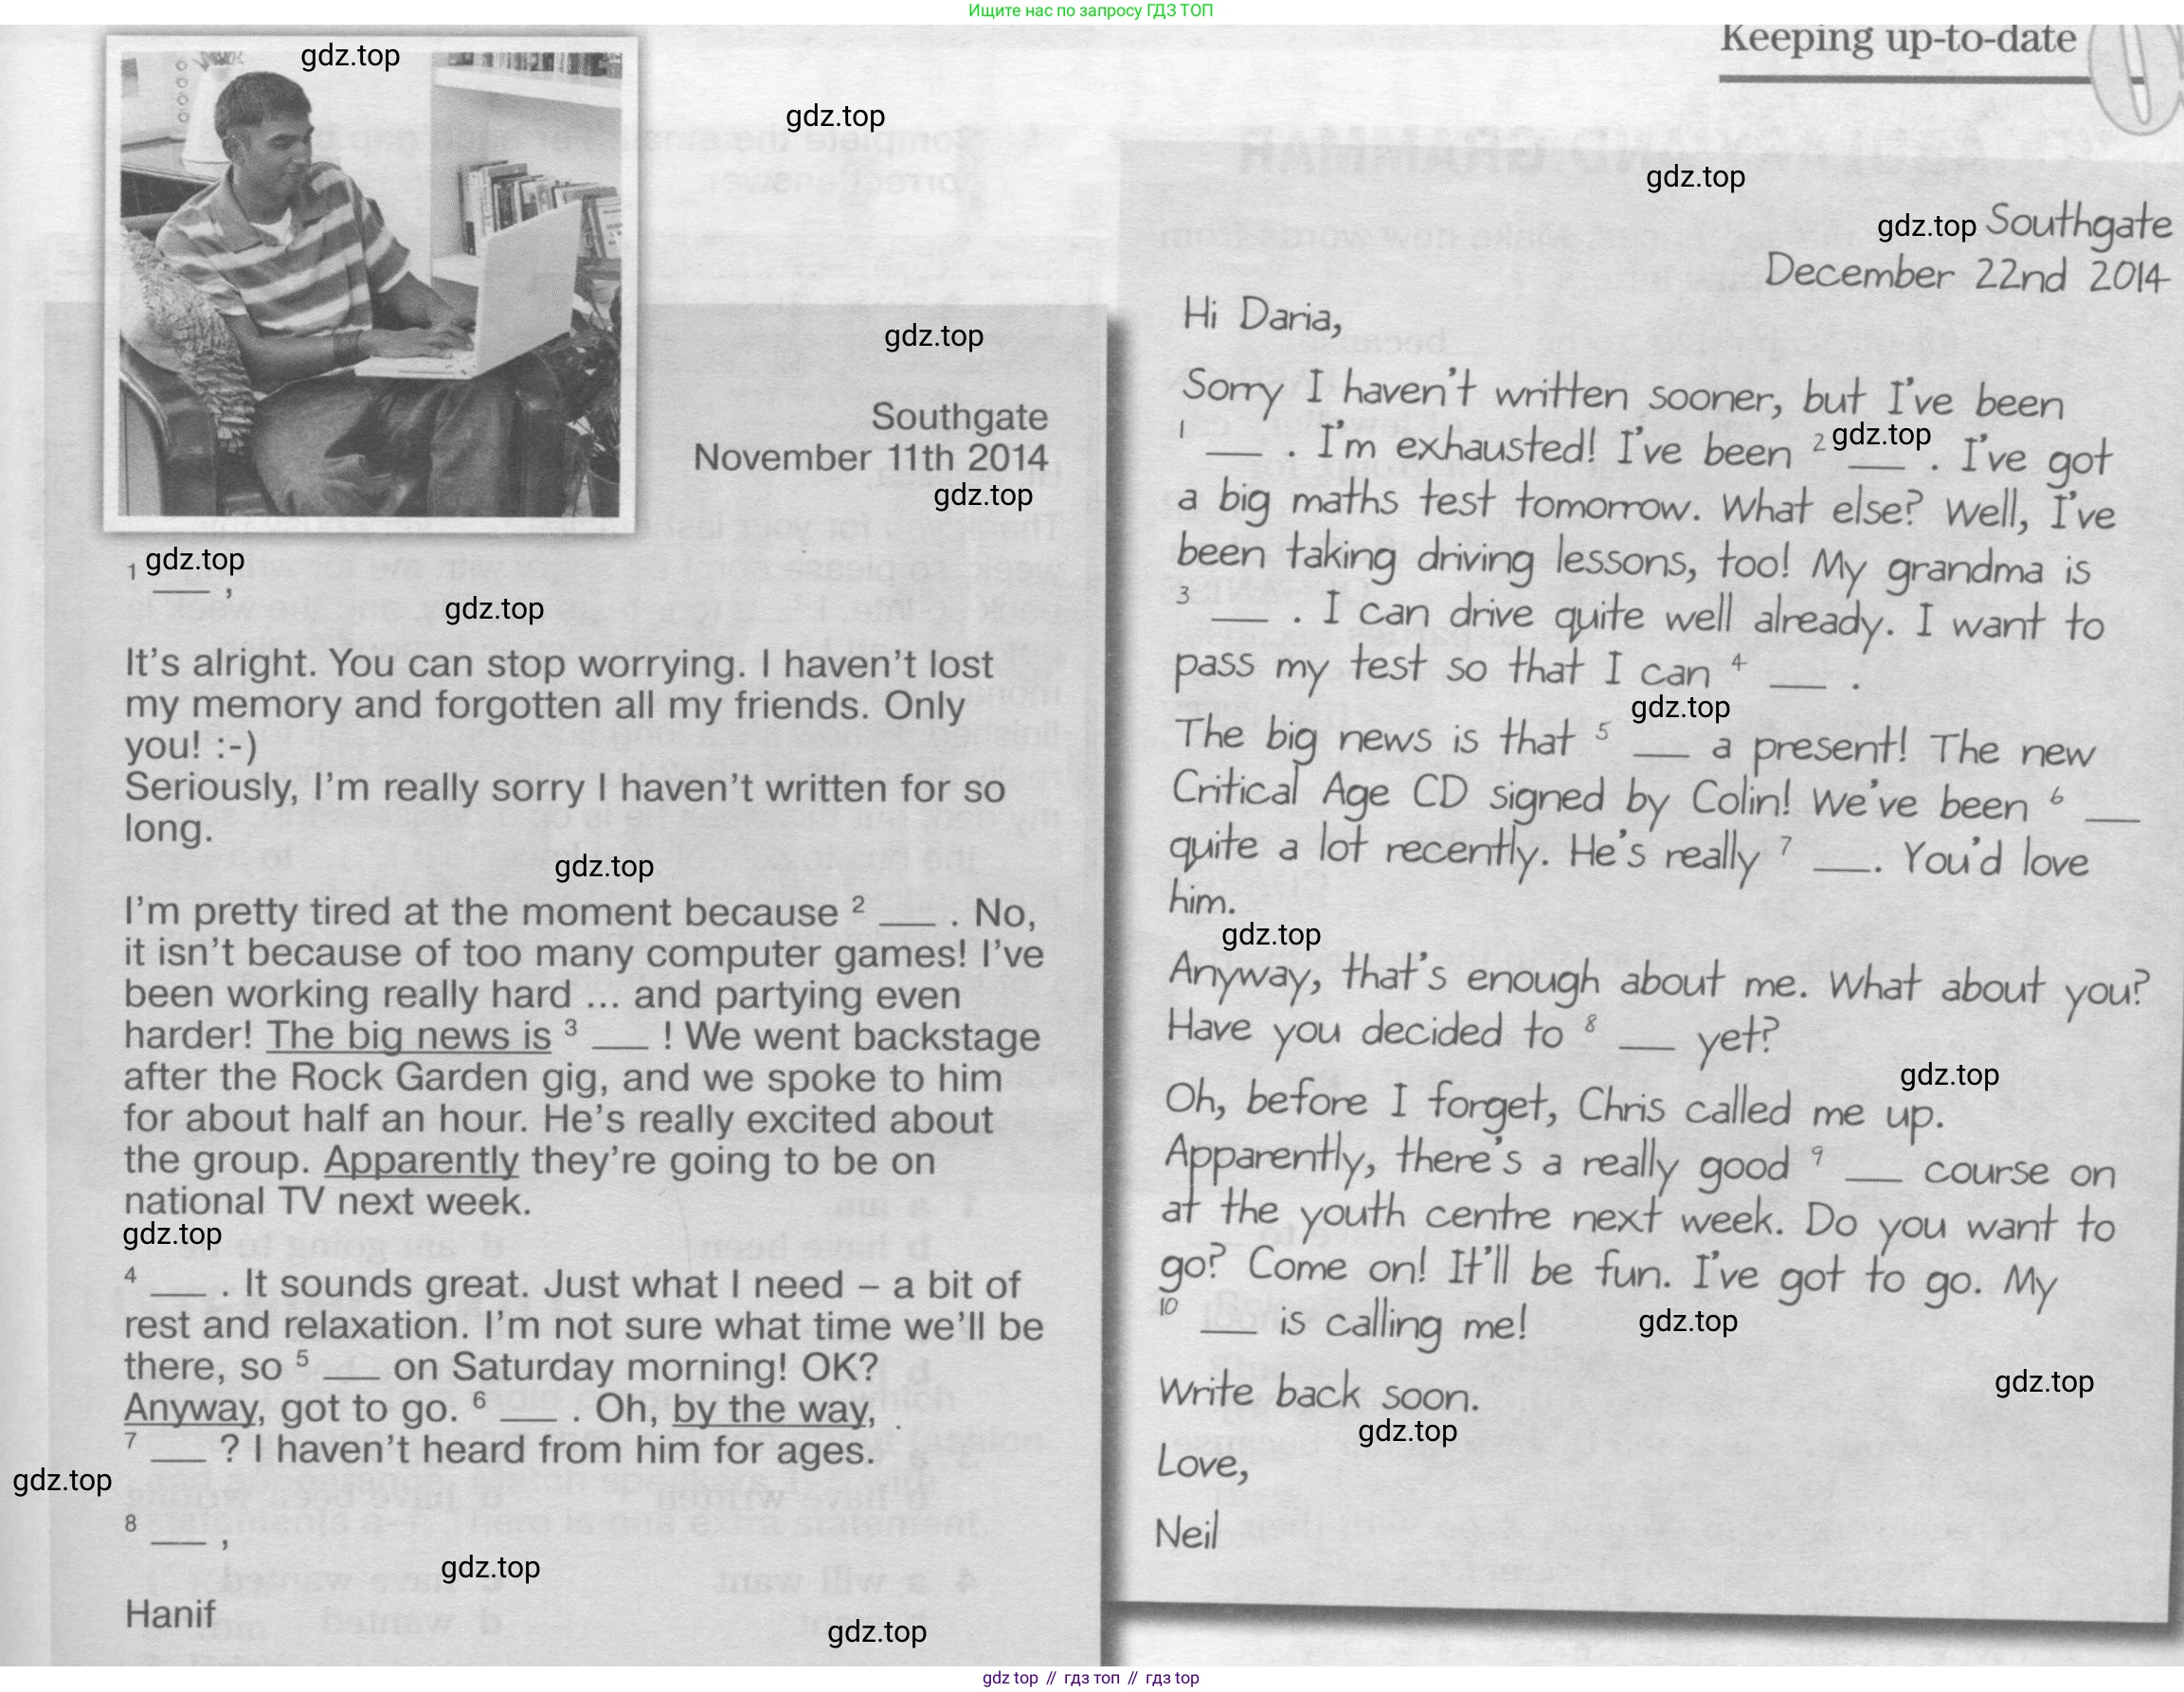 Ищите нас по запросу ГДЗ ТОП
Keeping up-to-date
gdz.top
gdz.top
gdz.top
gdz.top
Southgate
November 11th 2014
gdz.top
gdz.top
1 ___ ,
gdz.top
It's alright. You can stop worrying. I haven't lost
my memory and forgotten all my friends. Only
you! :-)
Seriously, I'm really sorry I haven't written for so
long.
gdz.top
I'm pretty tired at the moment because 2 ___ . No,
it isn't because of too many computer games! I've
been working really hard ... and partying even
harder! The big news is 3 ___ ! We went backstage
after the Rock Garden gig, and we spoke to him
for about half an hour. He's really excited about
the group. Apparently they're going to be on
national TV next week.
gdz.top
4 ___ . It sounds great. Just what I need – a bit of
rest and relaxation. I'm not sure what time we'll be
there, so 5 ___ on Saturday morning! OK?
Anyway, got to go. 6 ___ . Oh, by the way,
7 ___ ? I haven't heard from him for ages.
gdz.top
8 ___ ,
gdz.top
Hanif
gdz.top
gdz.top Southgate
December 22nd 2014
Hi Daria,
Sorry I haven't written sooner, but I've been
1 ___ . I'm exhausted! I've been 2 gdz.top ___ . I've got
a big maths test tomorrow. What else? Well, I've
been taking driving lessons, too! My grandma is
3 ___ . I can drive quite well already. I want to
pass my test so that I can 4 ___ .
gdz.top
The big news is that 5 ___ a present! The new
Critical Age CD signed by Colin! We've been 6 ___
quite a lot recently. He's really 7 ___. You'd love
him.
gdz.top
Anyway, that's enough about me. What about you?
Have you decided to 8 ___ yet?
gdz.top
Oh, before I forget, Chris called me up.
Apparently, there's a really good 9 ___ course on
at the youth centre next week. Do you want to
go? Come on! It'll be fun. I've got to go. My
10 ___ is calling me!
gdz.top
gdz.top
Write back soon.
gdz.top
Love,
Neil
gdz top // гдз топ // гдз top